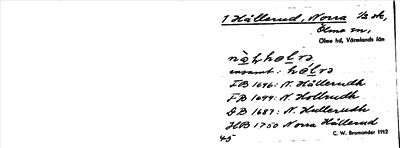 1 Hällerud, Norra 1/2 sk,
Ölme sn,
Ölme hd, Värmlands län
ensamt:
FB 1696: N. Hällerudh
FB 1699: N. Hollrudh
DB 1687: N. Hullerudh
HB 1750 Norra Hällerud
45
C. W. Bromander 1912